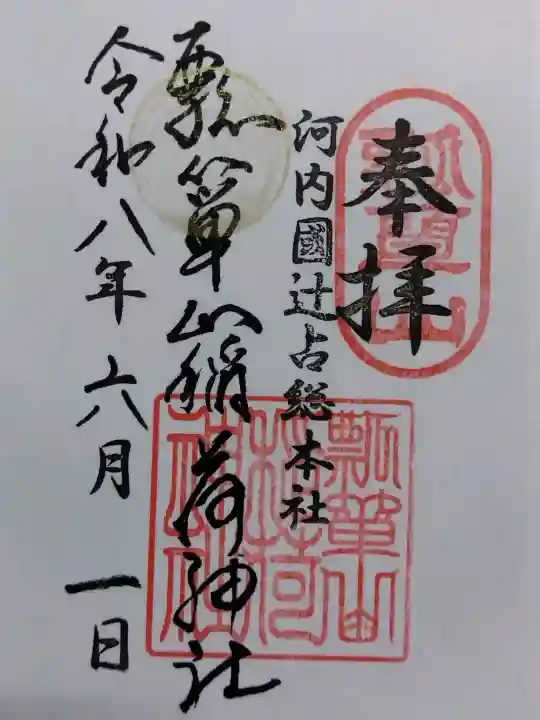 奉拝
瓢箪山
河内國辻占総本社
瓢箪山稲荷神社
瓢箪山
稲荷
神社
令和八年 六月 一日